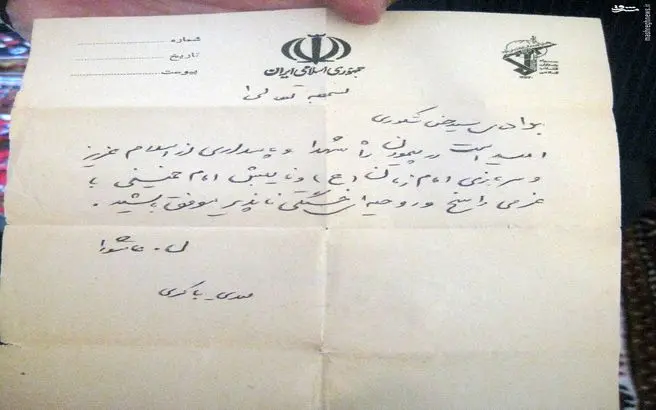 شماره
تاریخ
پیوست
جمهوری اسلامی ایران
بسمه تعالی
برادر سید حسن شکوری
امید است در پیمودن راه شهدا و پاسداری از اسلام عزیز
و سربازی امام زمان (عج) و نایبش امام خمینی با
عزمی راسخ و روحیه‌ای خستگی ناپذیر موفق باشید.
ل ۳۱ عاشورا
مهدی باکری
mashreghnews.ir